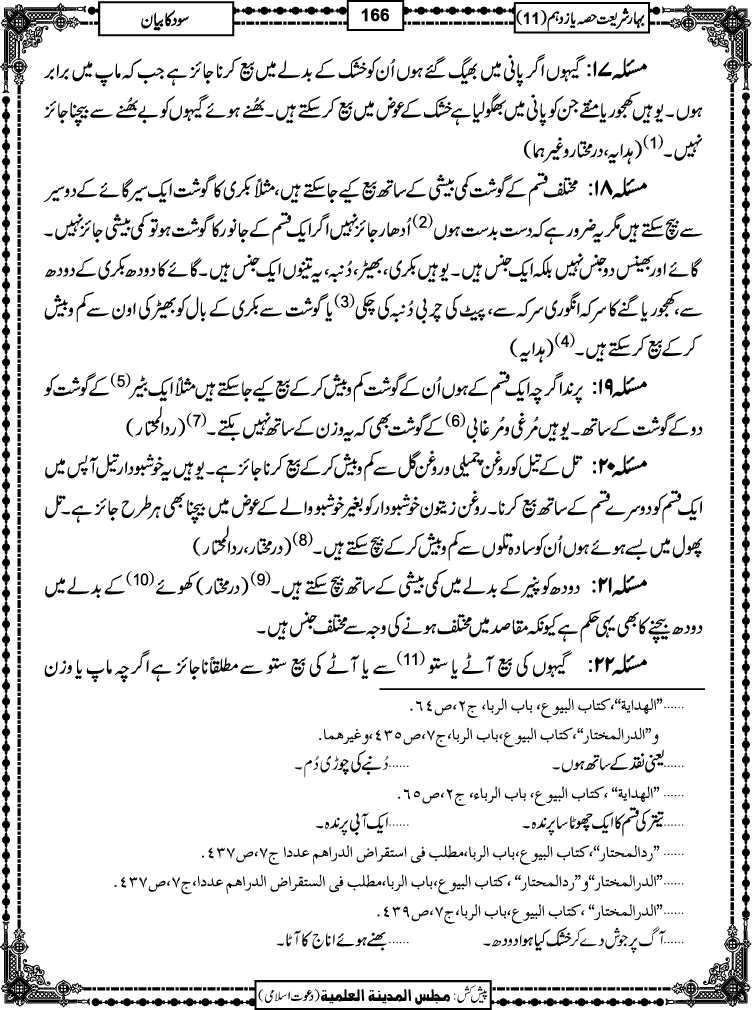 بہار شریعت حصہ یازدہم (11)
166
سود کا بیان
مسئلہ ۱۷: گیہوں اگر پانی میں بھیگ گئے ہوں اُن کو خشک کے بدلے میں بیع کرنا جائز ہے جب کہ ماپ میں برابر
ہوں۔ یوہیں کھجور یا منقے جن کو پانی میں بھگولیا ہے خشک کے عوض میں بیع کرسکتے ہیں۔ بھُنے ہوئے گیہوں کو بے بھُنے سے بیچنا جائز
نہیں۔(1) (ہدایہ، درمختار وغیرہما)
مسئلہ ۱۸: مختلف قسم کے گوشت کمی بیشی کے ساتھ بیع کیے جاسکتے ہیں، مثلاً بکری کا گوشت ایک سیر گائے کے دو سیر
سے بیچ سکتے ہیں مگر یہ ضرور ہے کہ دست بدست ہوں(2) اُدھار جائز نہیں اگر ایک قسم کے جانور کا گوشت ہو تو کمی بیشی جائز نہیں۔
گائے اور بھینس دو جنس نہیں بلکہ ایک جنس ہیں۔ یوہیں بکری، بھیڑ، دُنبہ، یہ تینوں ایک جنس ہیں۔ گائے کا دودھ بکری کے دودھ
سے، کھجور یا گنے کا سرکہ انگوری سرکہ سے، پیٹ کی چربی دُنبہ کی چکی(3) یا گوشت سے بکری کے بال کو بھیڑ کی اون سے کم و بیش
کر کے بیع کرسکتے ہیں۔(4) (ہدایہ)
مسئلہ ۱۹: پرند اگرچہ ایک قسم کے ہوں اُن کے گوشت کم و بیش کر کے بیع کیے جاسکتے ہیں مثلاً ایک بٹیر(5) کے گوشت کو
دو کے گوشت کے ساتھ۔ یوہیں مُرغی و مُرغابی(6) کے گوشت بھی کہ یہ وزن کے ساتھ نہیں بکتے۔(7) (ردالمحتار)
مسئلہ ۲۰: تل کے تیل کو روغن چمیلی و روغن گل سے کم و بیش کر کے بیع کرنا جائز ہے۔ یوہیں یہ خوشبودار تیل آپس میں
ایک قسم کو دوسرے قسم کے ساتھ بیع کرنا۔ روغن زیتون خوشبودار کو بغیر خوشبو والے کے عوض میں بیچنا بھی ہر طرح جائز ہے۔ تل
پھول میں بسے ہوئے ہوں اُن کو سادہ تلوں سے کم و بیش کر کے بیچ سکتے ہیں۔(8) (درمختار، ردالمحتار)
مسئلہ ۲۱: دودھ کو پنیر کے بدلے میں کمی بیشی کے ساتھ بیچ سکتے ہیں۔(9) (درمختار) کھوئے(10) کے بدلے میں
دودھ بیچنے کا بھی یہی حکم ہے کیونکہ مقاصد میں مختلف ہونے کی وجہ سے مختلف جنس ہیں۔
مسئلہ ۲۲: گیہوں کی بیع آٹے یا ستو(11) سے یا آٹے کی بیع ستو سے مطلقاً ناجائز ہے اگرچہ ماپ یا وزن
......”الھدایة“، کتاب البیوع، باب الربا، ج۲، ص۶٤.
و”الدرالمختار“، کتاب البیوع، باب الربا، ج۷، ص۴۳۵، وغیرھما.
......یعنی نقد کے ساتھ ہوں۔ ......دُنبے کی چوڑی دُم۔
......”الھدایة“، کتاب البیوع، باب الرباء، ج۲، ص۶۵.
......تیتر کی قسم کا ایک چھوٹا سا پرندہ۔ ......ایک آبی پرندہ۔
......”ردالمحتار“، کتاب البیوع، باب الربا، مطلب فی استقراض الدراھم عددا ج۷، ص۴۳۷.
......”الدرالمختار“ و”ردالمحتار“، کتاب البیوع، باب الربا، مطلب فی الستقراض الدراھم عددا، ج۷، ص۴۳۷.
......”الدرالمختار“، کتاب البیوع، باب الربا، ج۷، ص۴۳۹.
......آگ پر جوش دے کر خشک کیا ہوا دودھ۔ ......بھنے ہوئے اناج کا آٹا۔
پیش کش: مجلس المدینة العلمیة (دعوت اسلامی)